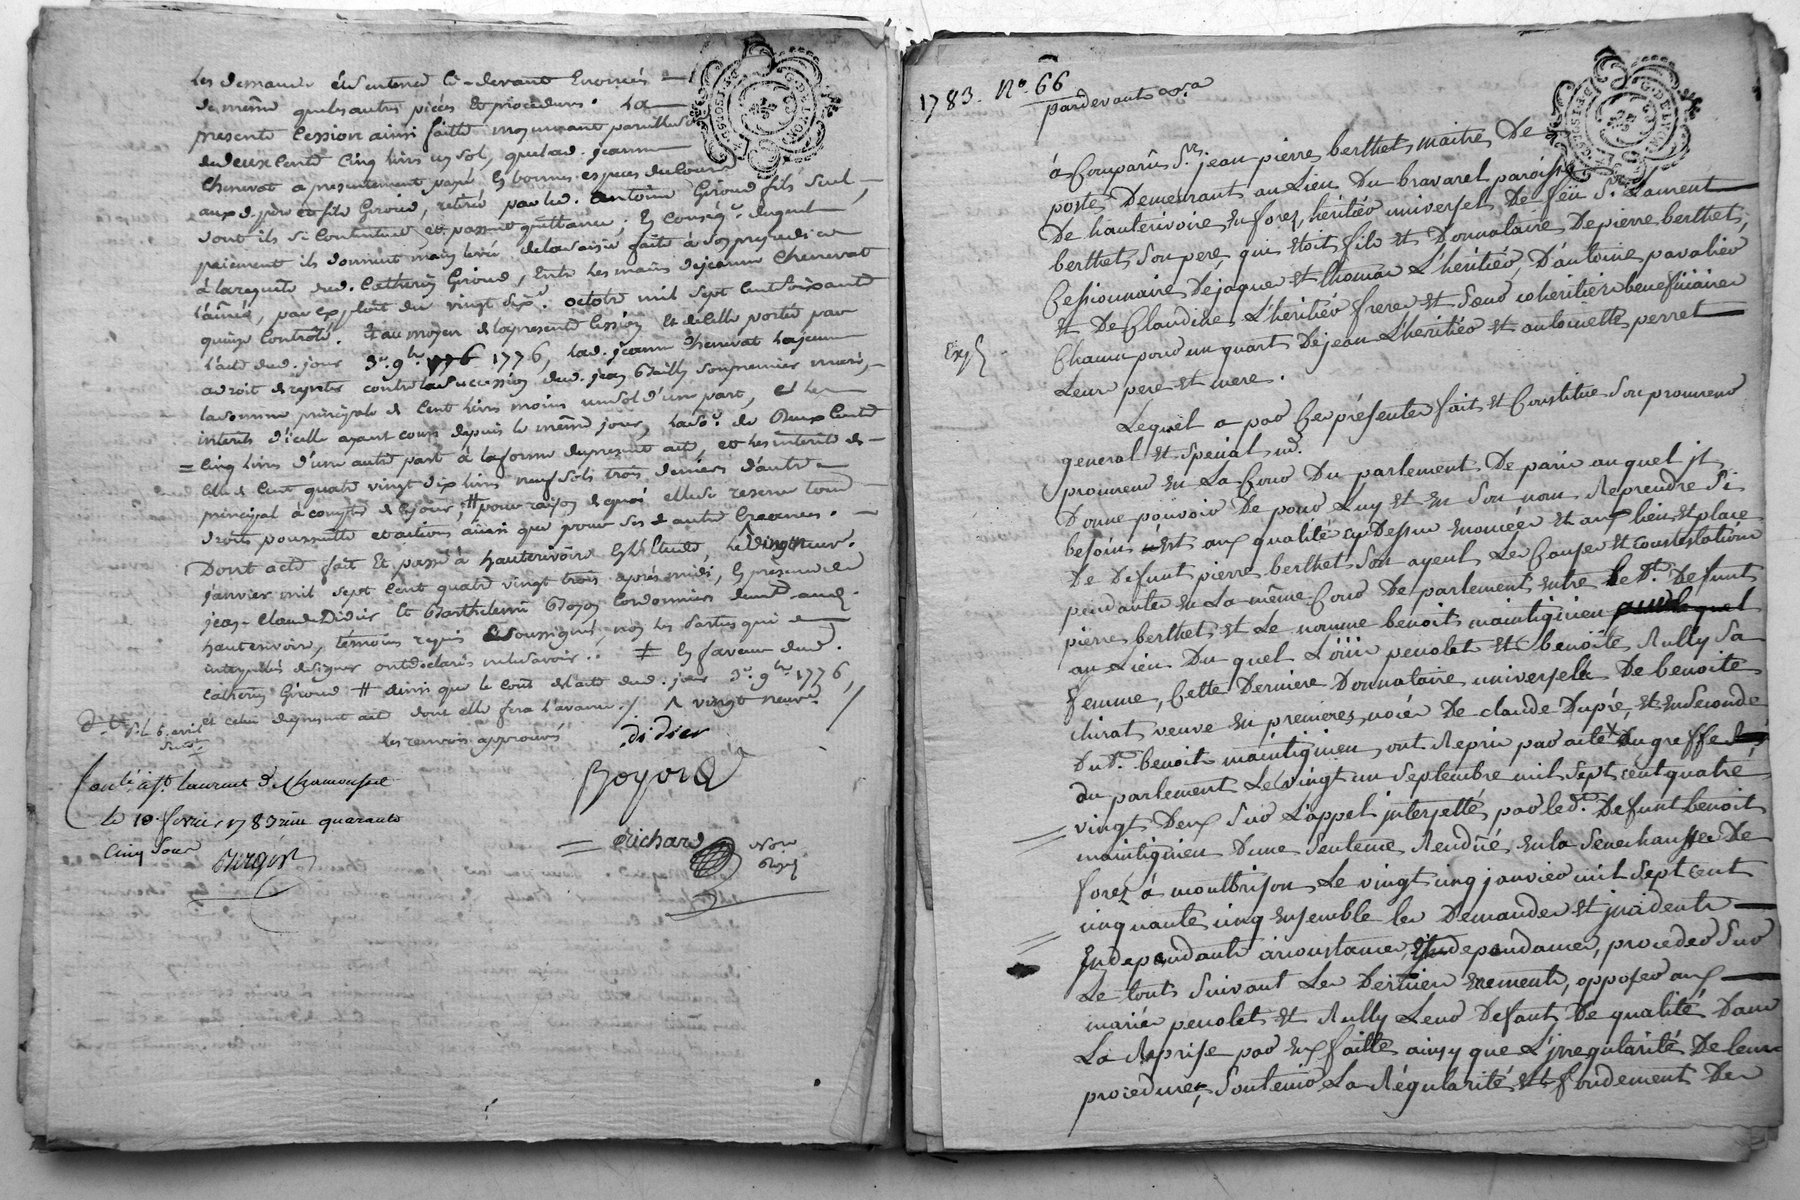 les demandes et sentence ci-devant énoncés
de même quels autres pièces et procedures. La
presente Cession ainsi faitte moyennant pareille
de deux Cents Cinq livres un sol, que lad. jeanne
Chenevat a presentement payé En bonnes especes du Cours
aux d. père et fils Giroud, retiré par led. antoine Giroud fils seul,
dont ils se Contentent, et passent quittance, En conséq.e duquel
paiement ils donnent main levée de la saisie faite à son prejudice
à la requête dud. Catherin Giroud, Entre les mains de jeanne Chenevat
l'aînée, par exploit du vingt six octobre mil sept Cent soixante
quinze Controlé. Et au moyen de la presente Cession Et de Celle portée par
l'acte dud. jour 3e. 9bre 1776, lad. jeanne Chenevat
a droit de repeter contre la Succession dud. jean Bailly son premier mari,
la somme principale de Cent livres moins un sol d'une part, et les
interêts d'icelle ayant cours depuis le même jour, la so.e de Deux Cents
Cinq livres d'une autre part à la forme du present acte, et les interêts de
Celle de Cent quatre vingt dix livres neuf sols trois deniers d'autre
principal à compter de Ce jour, # pour raison de quoi elle se reserve tous
droits poursuittes et actions ainsi que pour ses autres Creances.
Dont acte fait Et passé à hauterivoire En l'Etude, le vingt neuf
janvier mil sept Cent quatre vingt trois après midi, En presence de
jean-Claude Didier et Barthelemi Boyon Cordonniers dem.t aud.
hauterivoire, témoins requis Et soussignés non les Parties qui
interpellés de signer ont declarés ne le savoir. # En faveur dud.
Catherin Giroud # ainsi que le Cout de l'acte dud. jour 3e. 9bre 1776,
et celui du present acte dont elle fera l'avance / vingt neuf /
les renvois approuvés
6 avril
didier
Boyon
Cont.é à St. Laurent de Chamousset
le 10 fevrier 1783 reçu quarante
Cinq sous
Richard
1783. No. 66
pardevant
à Comparû Sr. jean pierre berthet, maitre De
poste, Demeurant au Lieu Du bravaret paroisse
De hauterivoire, en forez, héritier universel De feu Sr. Laurent
berthet, son pere qui étoit fils et Donnataire De pierre berthet,
Cessionnaire De jaque et thomas L'héritier, D'antoine pavalier
et De Claudine L'héritier frere et Sœur cohéritiers beneficiaires
Exp.
Chacun pour un quart De jean L'héritier et antoinette perret
Leur pere et mere.
Lequel a par Ces présentes fait et Constitué Son procureur
general et Special m.
procureur en La Cour Du parlement De paris auquel jl
Donne pouvoir De pour Luy et en Son nom Reprendre Si
besoin est aux qualités cy Dessus enoncées et aux lieu et place
De Defunt pierre berthet Son ayeul Les Causes et contestations
pendantes en La même Cour De parlement entre le d.t Defunt
pierre berthet et Le nommé benoit maintignieu
au Lieu Du quel Louis penolet et benoite Rully Sa
femme, Cette Derniere Donnataire universelle De benoite
chirat veuve en premieres noces De claude Dupré, et en Seconde
Du d.t benoit maintignieu, ont Repris par acte Du greffe
du parlement Le vingt un Septembre mil Sept cent quatre
vingt Deux Sur L'appel jnterjetté par le d.t Defunt benoit
maintignieu Dune Sentence Rendüe en la Senechaussée De
forez à montbrison Le vingt cinq janvier mil Sept cent
cinquante cinq ensemble les Demandes et jncidents
jndependants circonstances et dependances, proceder Sur
Le tout Suivant Les Derniers errements, opposer aux
mariés penolet et Rully Leur Defaut De qualité Dans
La Reprise par eux faitte ainsy que L'jrregularité De leurs
procedures, Soutenir La Régularité et fondement Des